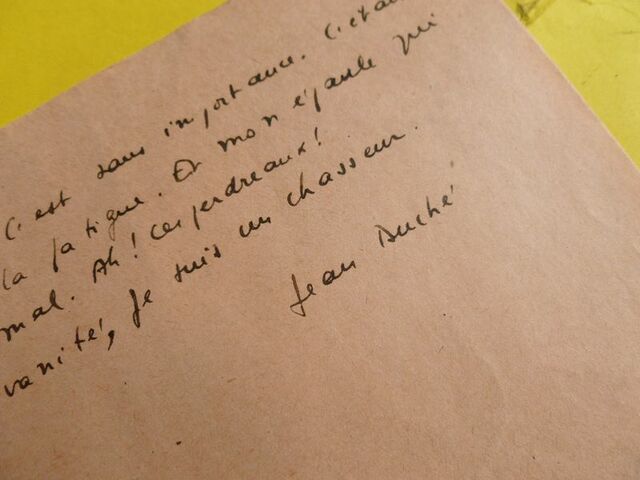 C'est sans importance. C'était
la fatigue. Et mon épaule qui
mal. Ah! Ces perdreaux!
vanité, je suis un chasseur.
Jean Duché